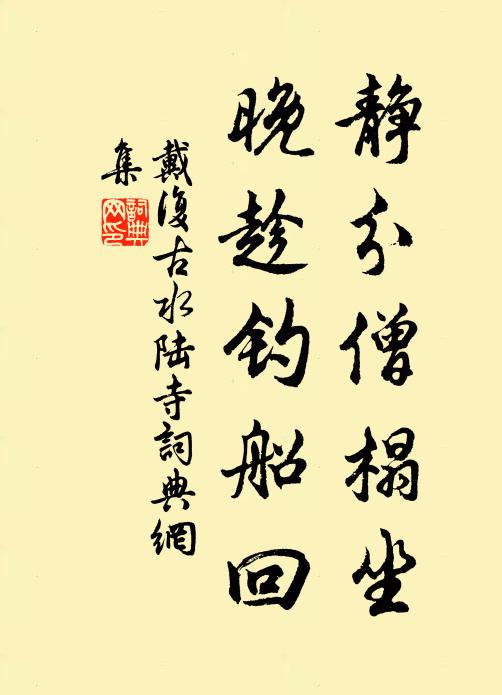 静分僧榻坐
晚趁钓船回
戴復古水陆寺詞典網
集
詞典网印